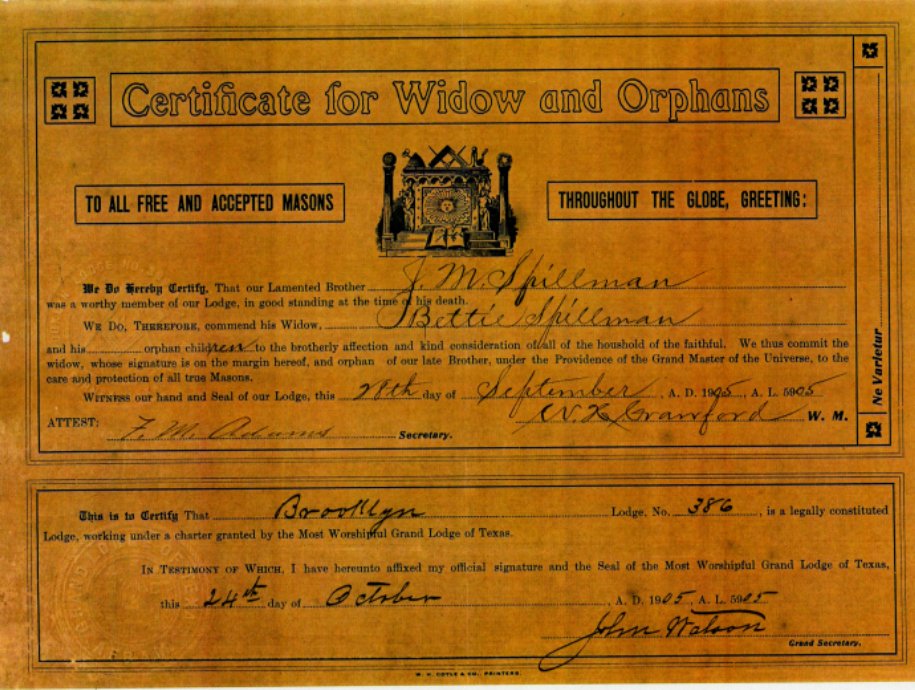 Certificate for Widow and Orphans
TO ALL FREE AND ACCEPTED MASONS
THROUGHOUT THE GLOBE, GREETING:
We Do Hereby Certify, That our Lamented Brother J. M. Spillman
was a worthy member of our Lodge, in good standing at the time of his death.
WE DO, THEREFORE, commend his Widow, Bettie Spillman
and his orphan children to the brotherly affection and kind consideration of all of the houshold of the faithful. We thus commit the
widow, whose signature is on the margin hereof, and orphan of our late Brother, under the Providence of the Grand Master of the Universe, to the
care and protection of all true Masons.
WITNESS our hand and Seal of our Lodge, this 28th day of September, A. D. 1905, A. L. 5905
Crawford W. M.
ATTEST: F. M. Adams Secretary.
Ne Varietur
This is to Certify That Brooklyn Lodge, No. 386, is a legally constituted
Lodge, working under a charter granted by the Most Worshipful Grand Lodge of Texas.
IN TESTIMONY OF WHICH, I have hereunto affixed my official signature and the Seal of the Most Worshipful Grand Lodge of Texas,
this 24th day of October, A. D. 1905, A. L. 5905
John Watson
Grand Secretary.
W. H. COYLE & CO., PRINTERS.